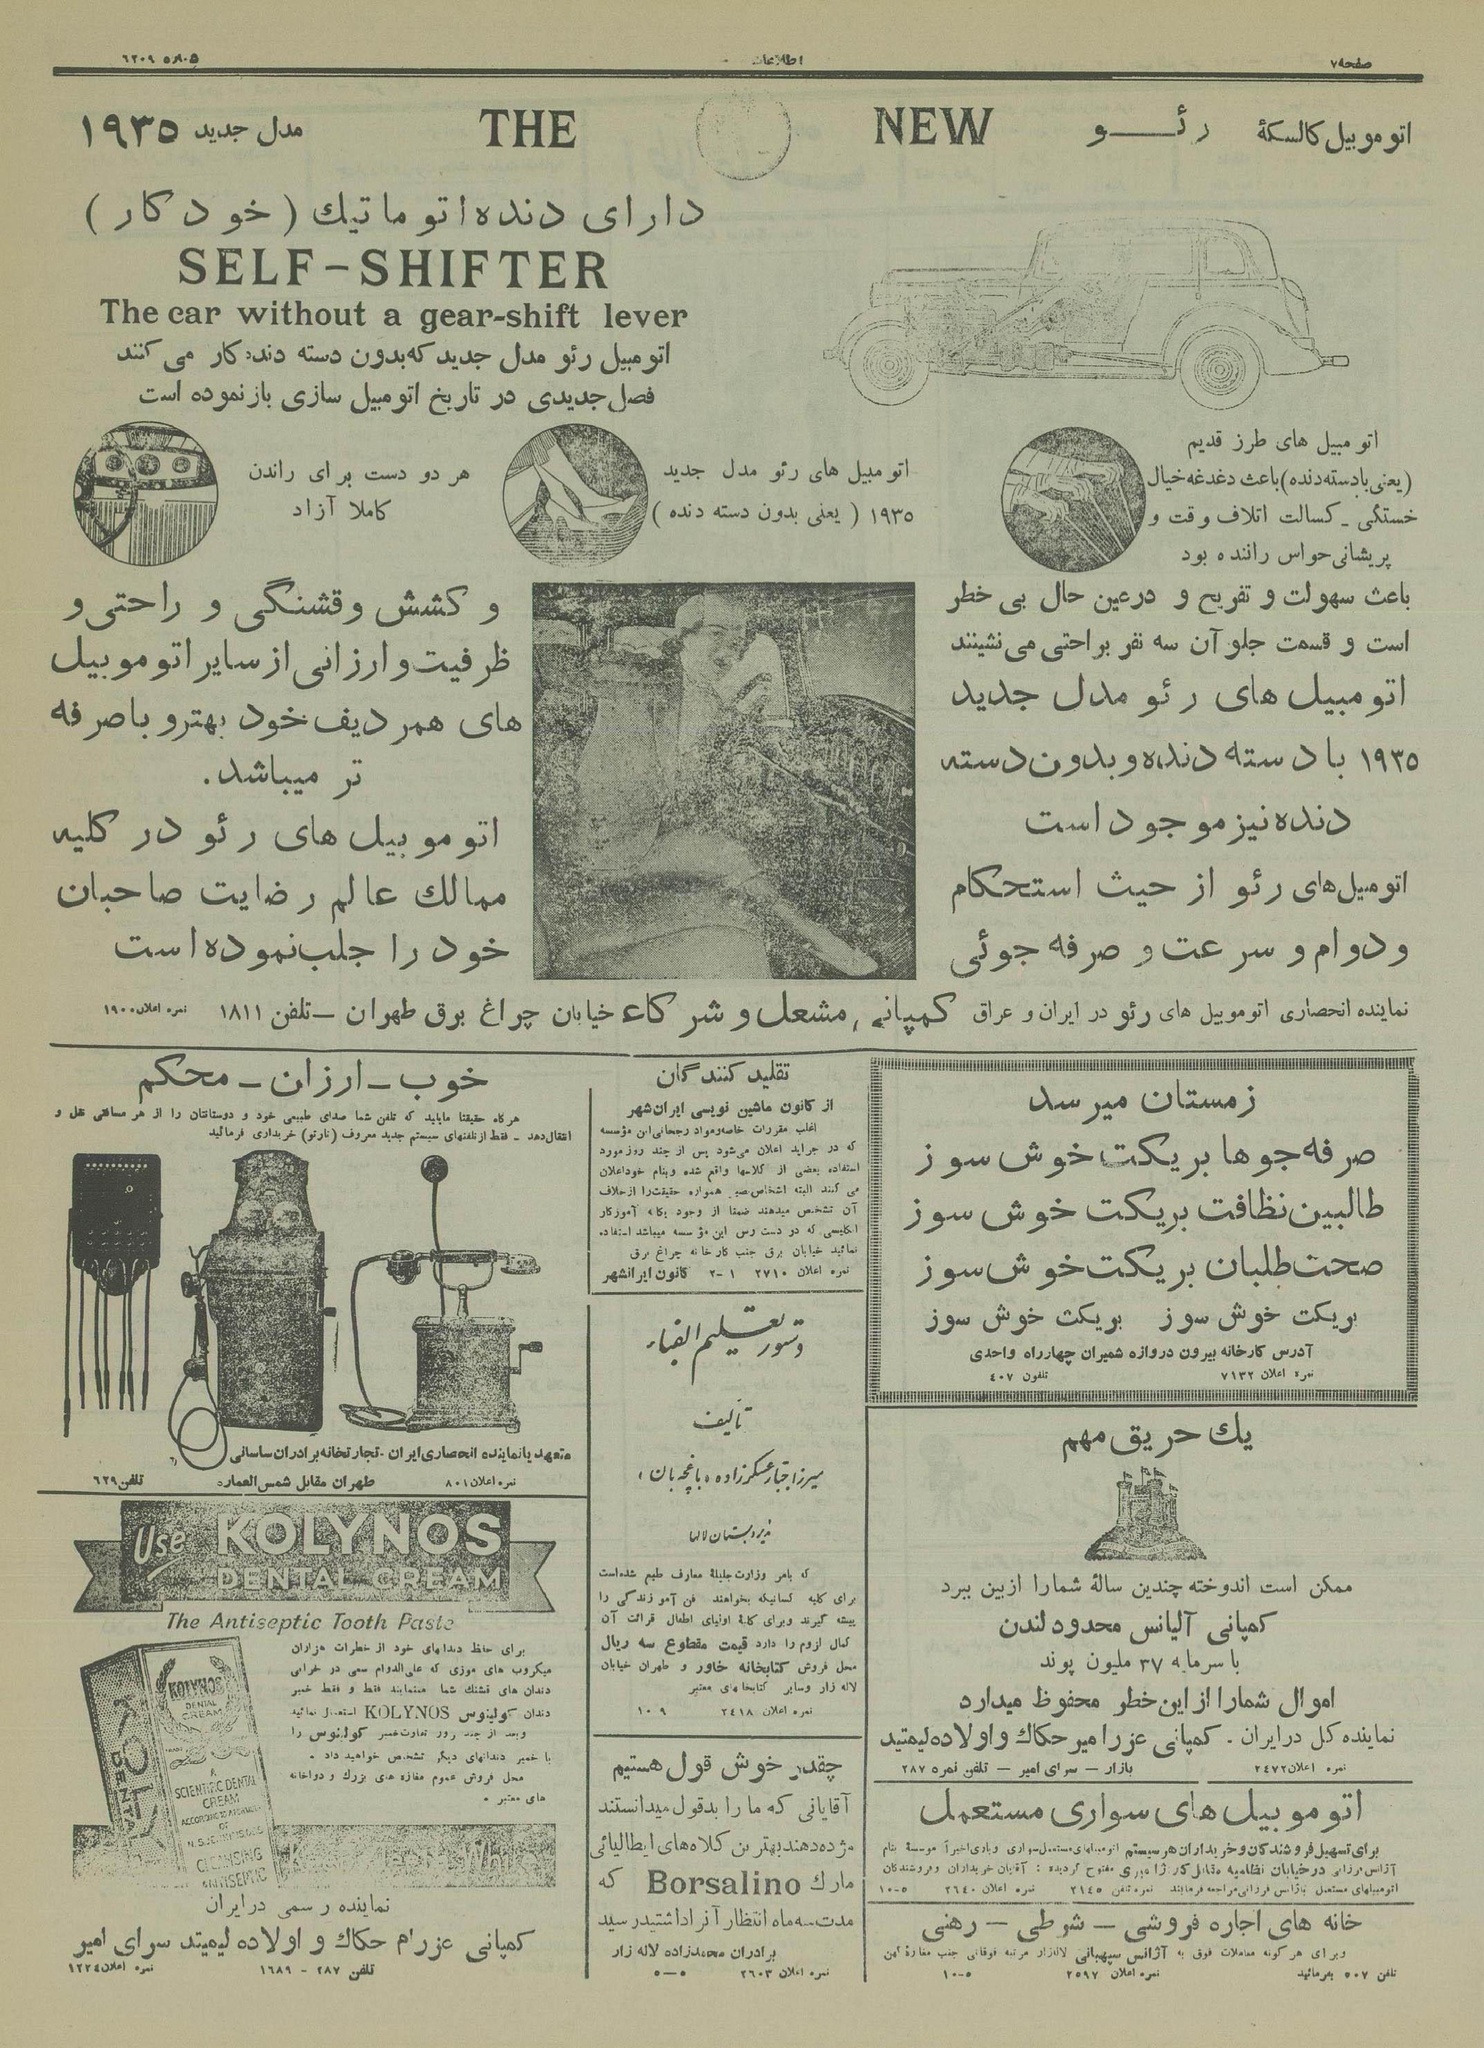 صفحه ۷
اطلاعات
شماره ۶۲۰۹
اتوموبیل کالسکهٔ رئـــو NEW THE مدل جدید ۱۹۳۵
دارای دنده اتوماتیك (خودکار)
SELF-SHIFTER
The car without a gear-shift lever
اتومبیل رئو مدل جدید که بدون دسته دنده کار می کنند
فصل جدیدی در تاریخ اتومبیل سازی بازنموده است
اتومبیل های طرز قدیم
(یعنی با دسته دنده) باعث دغدغه خیال
خستگی - کسالت اتلاف وقت و
پریشانی حواس راننده بود
اتومبیل های رئو مدل جدید
۱۹۳۵ (یعنی بدون دسته دنده)
هر دو دست برای راندن
کاملا آزاد
باعث سهولت و تفریح و درعین حال بی خطر
است و قسمت جلو آن سه نفر براحتی می نشینند
اتومبیل های رئو مدل جدید
۱۹۳۵ با دسته دنده و بدون دسته
دنده نیز موجود است
اتومبیل های رئو از حیث استحکام
و دوام و سرعت و صرفه جوئی
و کشش و قشنگی و راحتی و
ظرفیت و ارزانی از سایر اتوموبیل
های همردیف خود بهتر و با صرفه
تر میباشد.
اتوموبیل های رئو در کلیه
ممالك عالم رضایت صاحبان
خود را جلب نموده است
نماینده انحصاری اتوموبیل های رئو در ایران و عراق کمپانی مشعل و شرکاء خیابان چراغ برق طهران - تلفن ۱۸۱۱ نمره اعلان ۱۹۰۰
زمستان میرسد
صرفه جوها بریکت خوش سوز
طالبین نظافت بریکت خوش سوز
صحت طلبان بریکت خوش سوز
بریکت خوش سوز بریکت خوش سوز
آدرس کارخانه بیرون دروازه شمیران چهارراه واحدی
نمره اعلان ۷۱۳۲ تلفون ۴۰۷
یك حریق مهم
ممکن است اندوخته چندین سالهٔ شما را از بین ببرد
کمپانی آلیانس محدود لندن
با سرمایه ۳۷ ملیون پوند
اموال شما را از این خطر محفوظ میدارد
نماینده کل در ایران - کمپانی عزرا میر حکاك و اولاده لیمتید
بازار - سرای امیر - تلفن نمره ۲۸۷
نمره اعلان ۲۴۷۲
اتوموبیل های سواری مستعمل
برای تسهیل فروشندگان و خریداران هر سیستم اتومبیلهای مستعمل سواری و باری اخیراً موسسهٔ بنام
آژانس مرزانی در خیابان نظامیه مقابل کار مفتوح گردیده : آقایان خریداران و فروشندگان
اتومبیلهای مستعمل بآژانس مراجعه فرمایند نمره تلفن ۲۱۴۵ نمره اعلان ۲۶۴۰ ۵-۱۰
خانه های اجاره فروشی - شرطی - رهنی
و برای هر گونه معاملات فوق به آژانس سپهبانی لاله زار مرتبه فوقانی جنب مغازهٔ کهن
تلفن ۵۰۷ بفرمائید نمره اعلان ۲۵۹۷ ۵-۱۰
تقلید کنندگان
از کانون ماشین نویسی ایرانشهر
اغلب مقررات خاصه و مواد رجحانی این مؤسسه
که در جراید اعلان می‌شود پس از چند روز مورد
استفاده بعضی از کلاسها واقع شده و بنام خود اعلان
می کنند البته اشخاص همواره حقیقت را از خلاف
آن تشخص میدهند ضمنا از وجود یگانه آموزگار
انگلیسی که در دست رس این مؤسسه میباشد استفاده
نمائید خیابان برق جنب کارخانه چراغ برق
نمره اعلان ۲۷۱۰ ۱-۲ کانون ایرانشهر
دستور تعلیم الفباء
تألیف
میرزا جبار عسکرزاده «باغچه بان»
مدیر دبستان لالها
که بامر وزارت جلیلهٔ معارف طبع شده است
برای کلیه کسانیکه بخواهند فن آموزندگی را
پیشه گیرند و برای کافهٔ اولیای اطفال قرائت آن
کمال لزوم را دارد قیمت مقطوع سه ریال
محل فروش کتابخانه خاور و طهران خیابان
لاله زار و سایر کتابخانهای معتبر
نمره اعلان ۲۴۱۸ ۹-۱۰
چقدر خوش قول هستیم
آقایانی که ما را بدقول میدانستند
مژده دهند بهترین کلاه‌های ایطالیائی
مارك Borsalino که
مدت سه ماه انتظار آنرا داشتید رسید
برادران محمدزاده لاله زار
نمره اعلان ۲۶۰۳ ۵-۵
خوب - ارزان - محکم
هرگاه حقیقتا مایلید که تلفن شما صدای طبیعی خود و دوستانتان را از هر مسافتی نقل و
انتقال دهد - فقط از تلفنهای سیستم جدید معروف (نارتو) خریداری فرمائید
متعهد یا نماینده انحصاری ایران - تجارتخانه برادران ساسانی
نمره اعلان ۸۰۱ طهران مقابل شمس العماره تلفن ۶۲۹
Use KOLYNOS
DENTAL CREAM
The Antiseptic Tooth Paste
برای حفظ دندانهای خود از خطرات هزاران
میکروب های موزی که علی الدوام سعی در خرابی
دندان های قشنك شما مینمایند فقط و فقط خمیر
دندان کولینوس KOLYNOS استعمال نمائید
و بعد از چند روز تفاوت خمیر کولینوس را
با خمیر دندانهای دیگر تشخص خواهید داد .
محل فروش عموم مغازه های بزرك و دواخانه
های معتبر .
KOLYNOS
DENTAL
CREAM
A
SCIENTIFIC DENTAL
CREAM
OF
CLEANSING
ANTISEPTIC
نماینده رسمی در ایران
کمپانی عزرام حکاك و اولاده لیمیتد سرای امیر
تلفن ۲۸۷ - ۱۶۸۹ نمره اعلان ۱۲۲۴